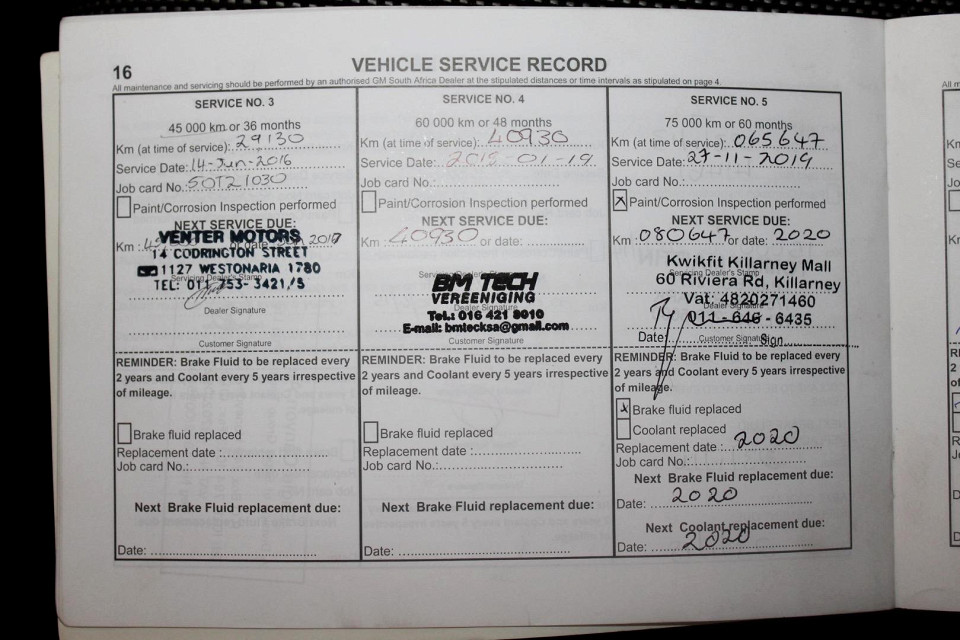 16
VEHICLE SERVICE RECORD
All maintenance and servicing should be performed by an authorised GM South Africa Dealer at the stipulated distances or time intervals as stipulated on page 4.
SERVICE NO. 3
45 000 km or 36 months
Km (at time of service): 29130
Service Date: 14-Jun-2016
Job card No.: SOT21030
Paint/Corrosion Inspection performed
NEXT SERVICE DUE:
Km : or date: 2017
VENTER MOTORS
14 CODRINGTON STREET
1127 WESTONARIA 1780
Servicing Dealer's Stamp
TEL: 011 753-3421/5
Dealer Signature
Customer Signature
REMINDER: Brake Fluid to be replaced every
2 years and Coolant every 5 years irrespective
of mileage.
Brake fluid replaced
Replacement date :
Job card No.:
Next Brake Fluid replacement due:
Date:
SERVICE NO. 4
60 000 km or 48 months
Km (at time of service): 40930
Service Date: 2018-01-19
Job card No.:
Paint/Corrosion Inspection performed
NEXT SERVICE DUE:
Km : 40930 or date:
Servicing Dealer's Stamp
BM TECH
VEREENIGING
Tel.: 016 421 8010
E-mail: bmtecksa@gmail.com
Customer Signature
REMINDER: Brake Fluid to be replaced every
2 years and Coolant every 5 years irrespective
of mileage.
Brake fluid replaced
Replacement date :
Job card No.:
Next Brake Fluid replacement due:
Date:
SERVICE NO. 5
75 000 km or 60 months
Km (at time of service): 065647
Service Date: 27-11-2019
Job card No.:
Paint/Corrosion Inspection performed
NEXT SERVICE DUE:
Km : 080647 or date: 2020
Kwikfit Killarney Mall
Servicing Dealer's Stamp
60 Riviera Rd, Killarney
Vat: 4820271460
Dealer Signature
011-646-6435
Date: Sign
Customer Signature
REMINDER: Brake Fluid to be replaced every
2 years and Coolant every 5 years irrespective
of mileage.
Brake fluid replaced
Coolant replaced
Replacement date : 2020
Job card No.:
Next Brake Fluid replacement due:
Date: 2020
Next Coolant replacement due:
Date: 2020